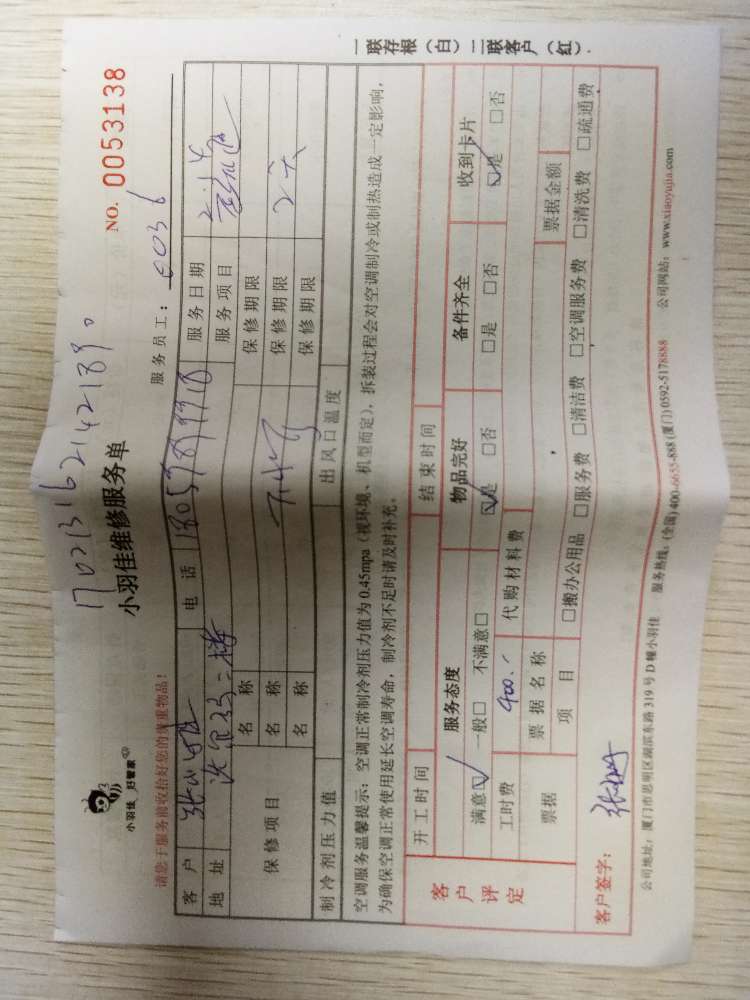 1702131621421890
小羽佳 好管家
小羽佳维修服务单
NO. 0053138
请您于服务前收拾好您的贵重物品!
服务员工: 0036
客户 电话 服务日期
地址 服务项目
保修项目 名称 保修期限
名称 保修期限
名称 保修期限
制冷剂压力值 出风口温度
空调服务温馨提示:空调正常制冷剂压力值为0.45mpa(视环境、机型而定),拆装过程会对空调制冷或制热造成一定影响,
为确保空调正常使用延长空调寿命,制冷剂不足时请及时补充。
客户评定 开工时间 结束时间
服务态度 物品完好 备件齐全 收到卡片
满意☑ 一般□ 不满意□ ☑是 □否 □是 □否 ☑是 □否
工时费 400.- 代购材料费
票据 票据名称 票据金额
项目 □搬办公用品 □服务费 □清洁费 □空调服务费 □清洗费 □疏通费
客户签字:
公司地址:厦门市思明区湖滨东路319号D幢小羽佳 服务热线:(全国)400-6655-888(厦门)0592-5178888 公司网站:www.xiaoyujia.com
一联存根(白)二联客户(红).